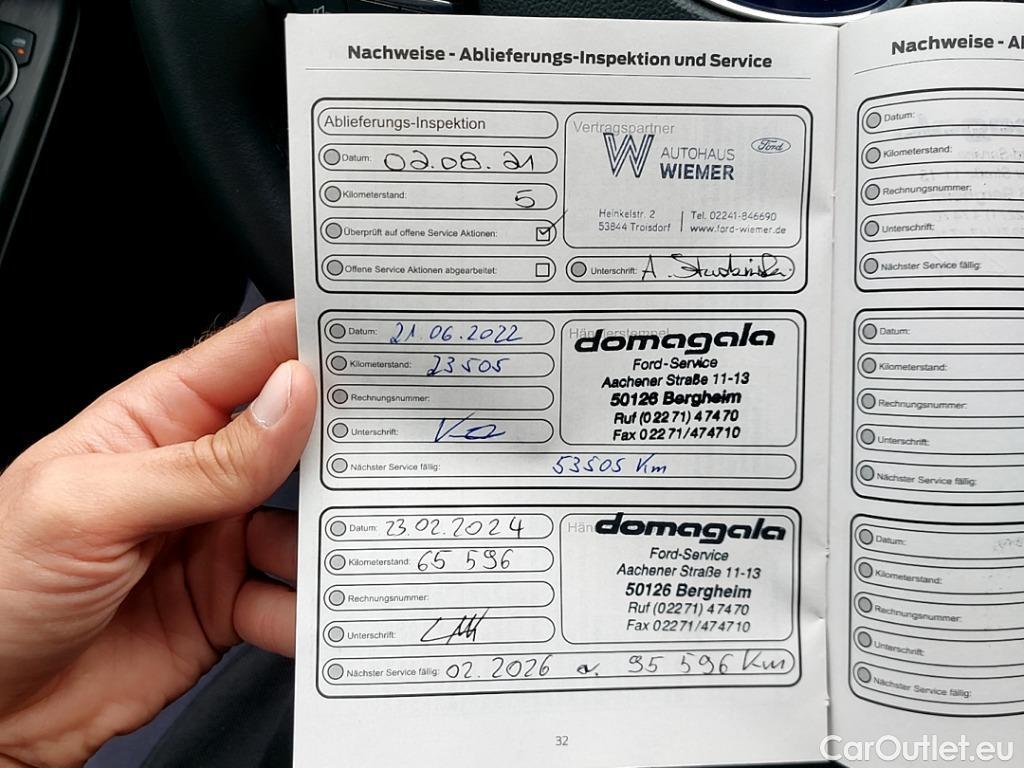 Nachweise - Ablieferungs-Inspektion und Service
Ablieferungs-Inspektion
Datum: 02.08.21
Kilometerstand: 5
Überprüft auf offene Service Aktionen:
Offene Service Aktionen abgearbeitet:
Vertragspartner
Ford
W AUTOHAUS
WIEMER
Heinkelstr. 2 | Tel. 02241-846690
53844 Troisdorf | www.ford-wiemer.de
Unterschrift: A.
Datum: 21.06.2022
Kilometerstand: 23505
Rechnungsnummer:
Unterschrift:
Händlerstempel
domagala
Ford-Service
Aachener Straße 11-13
50126 Bergheim
Ruf (02271) 47470
Fax 02271/474710
Nächster Service fällig: 53505 Km
Datum: 23.02.2024
Kilometerstand: 65 596
Rechnungsnummer:
Unterschrift:
Hän
domagala
Ford-Service
Aachener Straße 11-13
50126 Bergheim
Ruf (02271) 47470
Fax 02271/474710
Nächster Service fällig: 02.2026 o. 95 596 Km
32
Nachweise - Al
Datum:
Kilometerstand:
Rechnungsnummer:
Unterschrift:
Nächster Service fällig:
Datum:
Kilometerstand:
Rechnungsnummer:
Unterschrift:
Nächster Service fällig:
Datum:
Kilometerstand:
Rechnungsnummer:
Unterschrift:
Nächster Service fällig:
CarOutlet.eu